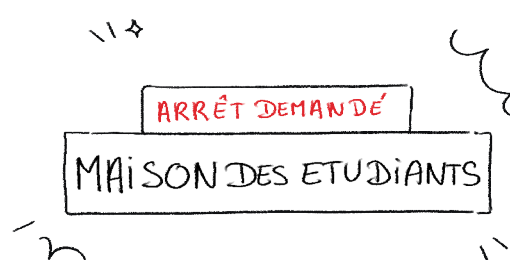 ARRÊT DEMANDÉ
MAiSON DES ETUDiANTS